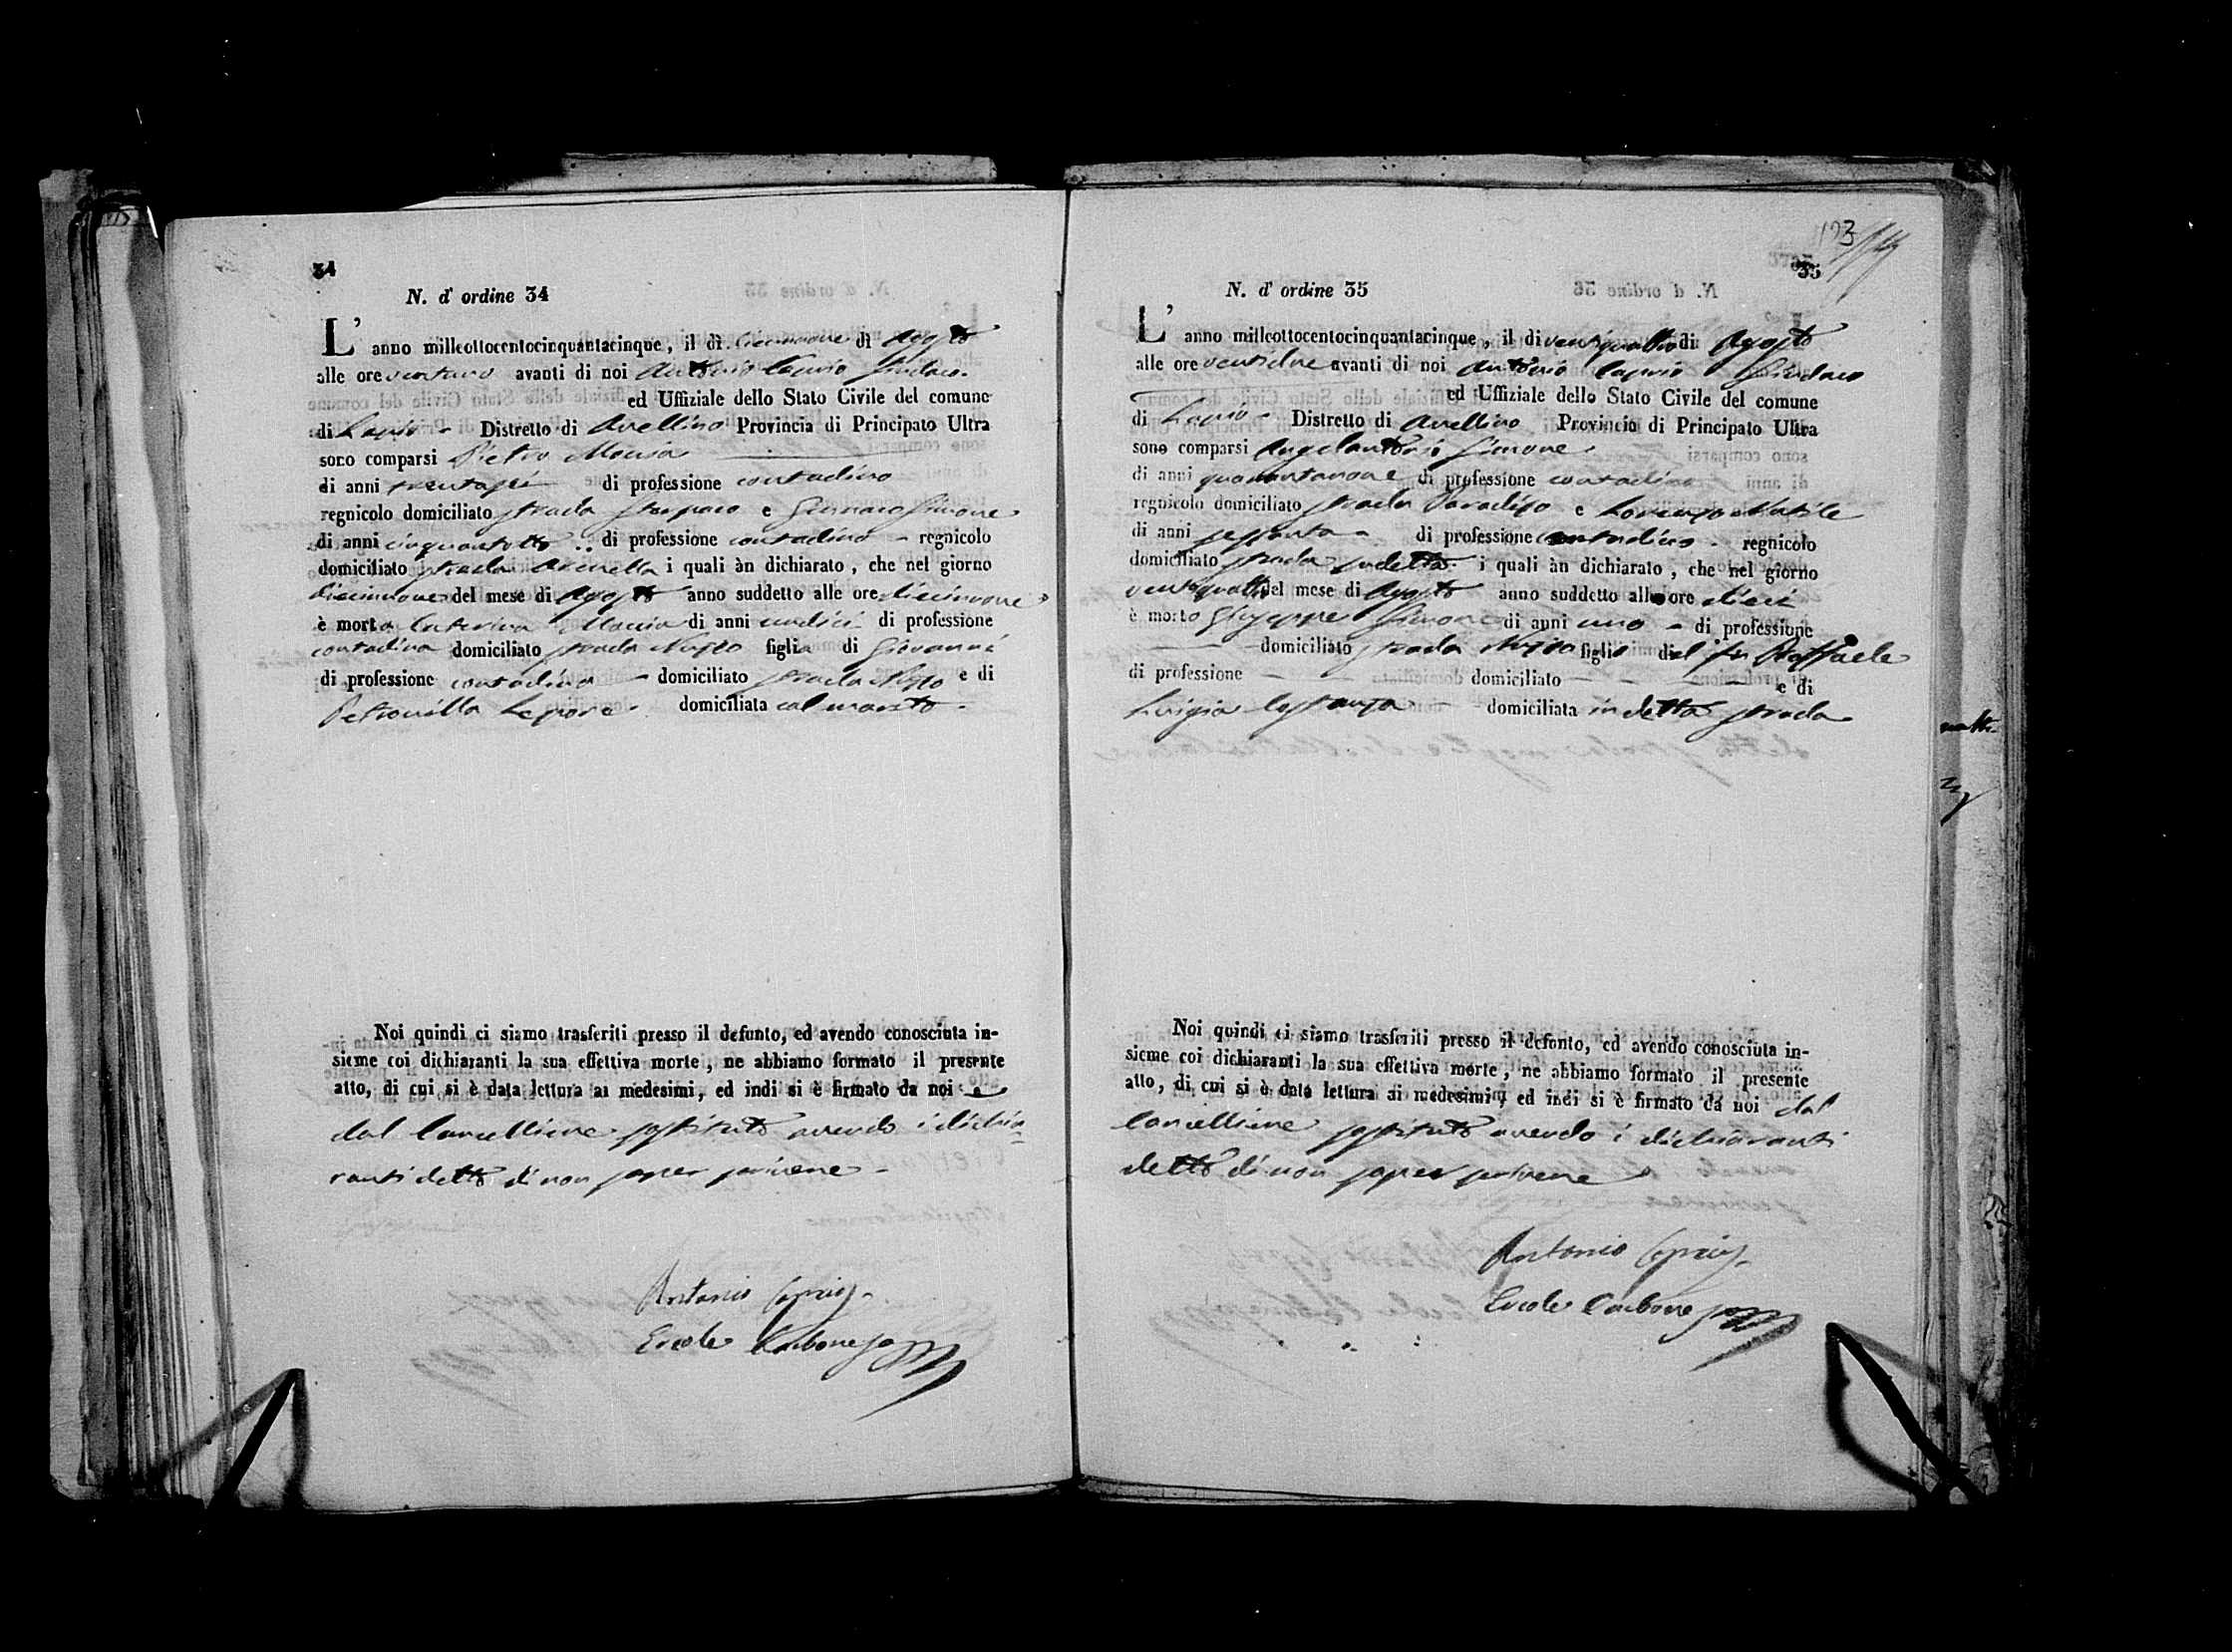 34
N. d' ordine 34
L'anno millcottocentocinquantacinque, il dì diecinnove di Agosto
alle ore ventuno avanti di noi Antonio Caprio Sindaco
ed Uffiziale dello Stato Civile del comune
di Lapio Distretto di Avellino Provincia di Principato Ultra
sono comparsi Pietro
di anni trentasei di professione contadino
regnicolo domiciliato strada e Gennaro Simone
di anni cinquantotto di professione contadino regnicolo
domiciliato strada i quali àn dichiarato, che nel giorno
diecinnove del mese di Agosto anno suddetto alle ore diecinnove
è morta Caterina di anni undici di professione
contadina domiciliato strada figlia di Giovanni
di professione contadino domiciliato strada e di
Petronilla Lepore domiciliata col marito
Noi quindi ci siamo trasferiti presso il defunto, ed avendo conosciuta in-
sieme coi dichiaranti la sua effettiva morte, ne abbiamo formato il presente
atto, di cui si è data lettura ai medesimi, ed indi si è firmato da noi e
dal Cancelliere sostituto avendo i dichia-
ranti detto di non saper scrivere
Antonio Caprio
Ercole Carbone
123
35
N. d' ordine 35
L'anno millcottocentocinquantacinque, il dì ventiquattro di Agosto
alle ore ventidue avanti di noi Antonio Caprio Sindaco
ed Uffiziale dello Stato Civile del comune
di Lapio Distretto di Avellino Provincia di Principato Ultra
sono comparsi Angelantonio Simone
di anni quarantanove di professione contadino
regnicolo domiciliato strada Paradiso e Lorenzo
di anni sessanta di professione contadino regnicolo
domiciliato strada sudetta i quali àn dichiarato, che nel giorno
ventiquattro del mese di Agosto anno suddetto alle ore dieci
è morto Giuseppe Simone di anni uno di professione
domiciliato strada figlio del fu Raffaele
di professione domiciliato e di
Luigia Costanza domiciliata in detta strada
Noi quindi ci siamo trasferiti presso il defunto, ed avendo conosciuta in-
sieme coi dichiaranti la sua effettiva morte, ne abbiamo formato il presente
atto, di cui si è data lettura ai medesimi, ed indi si è firmato da noi dal
Cancelliere sostituto avendo i dichiaranti
detto di non saper scrivere
Antonio Caprio
Ercole Carbone